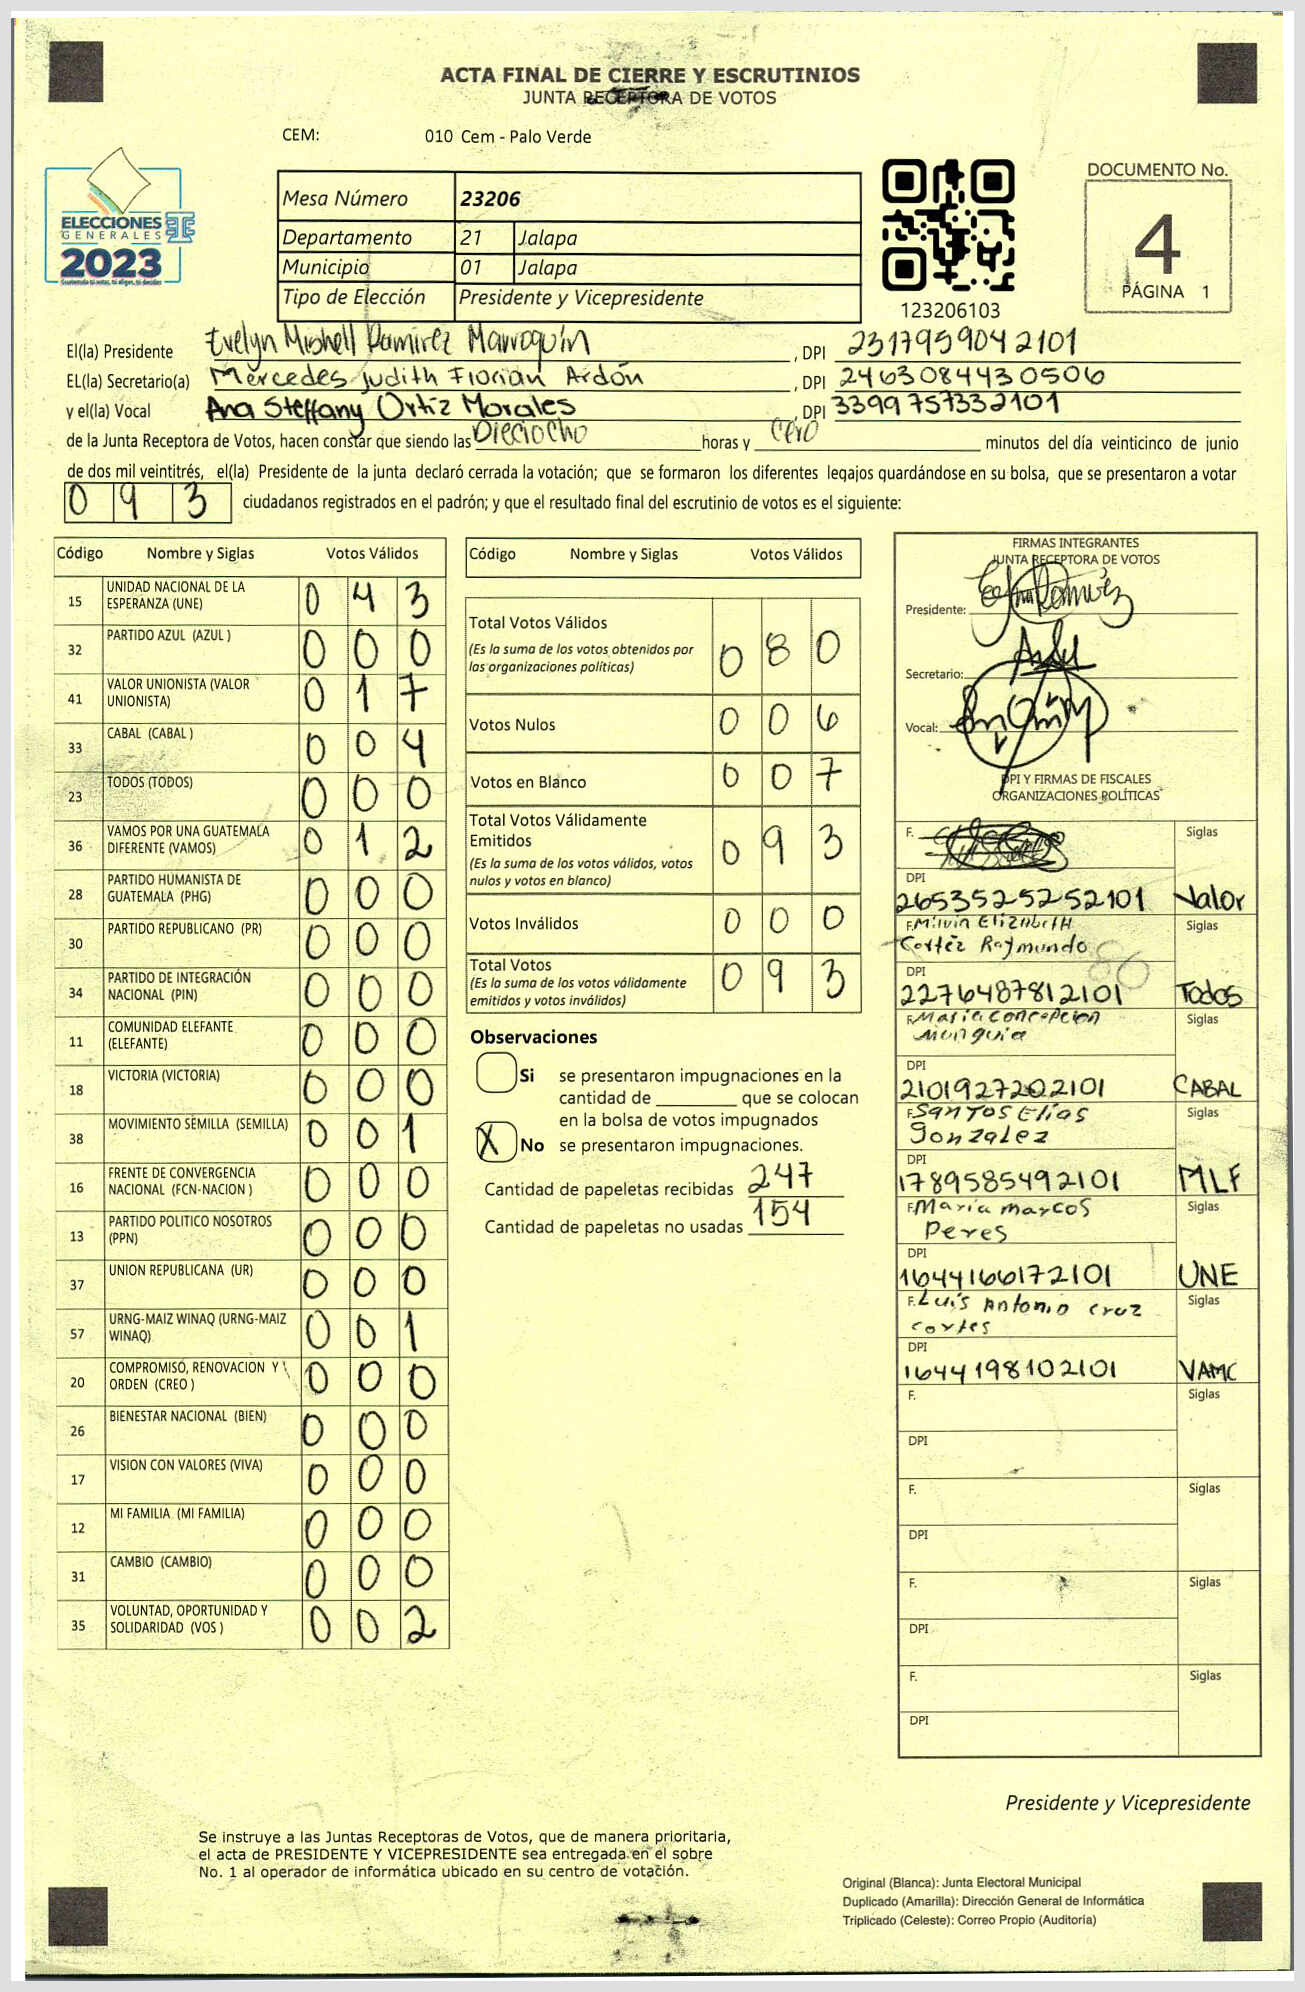 ACTA FINAL DE CIERRE Y ESCRUTINIOS
JUNTA RECEPTORA DE VOTOS
CEM: 010 Cem - Palo Verde
ELECCIONES
GENERALES
2023
Mesa Número 23206
Departamento 21 Jalapa
Municipio 01 Jalapa
Tipo de Elección Presidente y Vicepresidente
123206103
DOCUMENTO No.
4
PÁGINA 1
El(la) Presidente Evelyn Mishell Ramirez Marroquín , DPI 2317959042101
EL(la) Secretario(a) Mercedes Judith Florian Ardón , DPI 2463084430506
y el(la) Vocal Ana Steffany Ortiz Morales , DPI 3399757332101
de la Junta Receptora de Votos, hacen constar que siendo las Dieciocho horas y cero minutos del día veinticinco de junio
de dos mil veintitrés, el(la) Presidente de la junta declaró cerrada la votación; que se formaron los diferentes legajos quardándose en su bolsa, que se presentaron a votar
0 9 3 ciudadanos registrados en el padrón; y que el resultado final del escrutinio de votos es el siguiente:
Código Nombre y Siglas Votos Válidos
15 UNIDAD NACIONAL DE LA ESPERANZA (UNE) 0 4 3
32 PARTIDO AZUL (AZUL ) 0 0 0
41 VALOR UNIONISTA (VALOR UNIONISTA) 0 1 7
33 CABAL (CABAL ) 0 0 4
23 TODOS (TODOS) 0 0 0
36 VAMOS POR UNA GUATEMALA DIFERENTE (VAMOS) 0 1 2
28 PARTIDO HUMANISTA DE GUATEMALA (PHG) 0 0 0
30 PARTIDO REPUBLICANO (PR) 0 0 0
34 PARTIDO DE INTEGRACIÓN NACIONAL (PIN) 0 0 0
11 COMUNIDAD ELEFANTE (ELEFANTE) 0 0 0
18 VICTORIA (VICTORIA) 0 0 0
38 MOVIMIENTO SEMILLA (SEMILLA) 0 0 1
16 FRENTE DE CONVERGENCIA NACIONAL (FCN-NACION ) 0 0 0
13 PARTIDO POLITICO NOSOTROS (PPN) 0 0 0
37 UNION REPUBLICANA (UR) 0 0 0
57 URNG-MAIZ WINAQ (URNG-MAIZ WINAQ) 0 0 1
20 COMPROMISO, RENOVACION Y ORDEN (CREO ) 0 0 0
26 BIENESTAR NACIONAL (BIEN) 0 0 0
17 VISION CON VALORES (VIVA) 0 0 0
12 MI FAMILIA (MI FAMILIA) 0 0 0
31 CAMBIO (CAMBIO) 0 0 0
35 VOLUNTAD, OPORTUNIDAD Y SOLIDARIDAD (VOS ) 0 0 2
Código Nombre y Siglas Votos Válidos
Total Votos Válidos 0 8 0
(Es la suma de los votos obtenidos por
las organizaciones políticas)
Votos Nulos 0 0 6
Votos en Blanco 0 0 7
Total Votos Válidamente
Emitidos 0 9 3
(Es la suma de los votos válidos, votos
nulos y votos en blanco)
Votos Inválidos 0 0 0
Total Votos 0 9 3
(Es la suma de los votos válidamente
emitidos y votos inválidos)
Observaciones
Si se presentaron impugnaciones en la
cantidad de ________ que se colocan
en la bolsa de votos impugnados
X No se presentaron impugnaciones.
Cantidad de papeletas recibidas 247
Cantidad de papeletas no usadas 154
FIRMAS INTEGRANTES
JUNTA RECEPTORA DE VOTOS
Presidente:
Secretario:
Vocal:
DPI Y FIRMAS DE FISCALES
ORGANIZACIONES POLÍTICAS
F. Siglas
DPI
2653525252101 Valor
F. Milvin Elizabeth Siglas
Cortéz Raymundo
86
DPI
2276487812101 Todos
F. Maria Concepcion Siglas
Munguia
DPI
2101927202101 CABAL
F. Santos Elias Siglas
Gonzalez
DPI
1789585492101 MLF
F. Maria Marcos Siglas
Peres
DPI
1644166172101 UNE
F. Luis Antonio Cruz Siglas
Cortes
DPI
1644198102101 VAMC
F. Siglas
DPI
F. Siglas
DPI
F. Siglas
DPI
F. Siglas
DPI
Presidente y Vicepresidente
Se instruye a las Juntas Receptoras de Votos, que de manera prioritaria,
el acta de PRESIDENTE Y VICEPRESIDENTE sea entregada en el sobre
No. 1 al operador de informática ubicado en su centro de votación.
Original (Blanca): Junta Electoral Municipal
Duplicado (Amarilla): Dirección General de Informática
Triplicado (Celeste): Correo Propio (Auditoría)